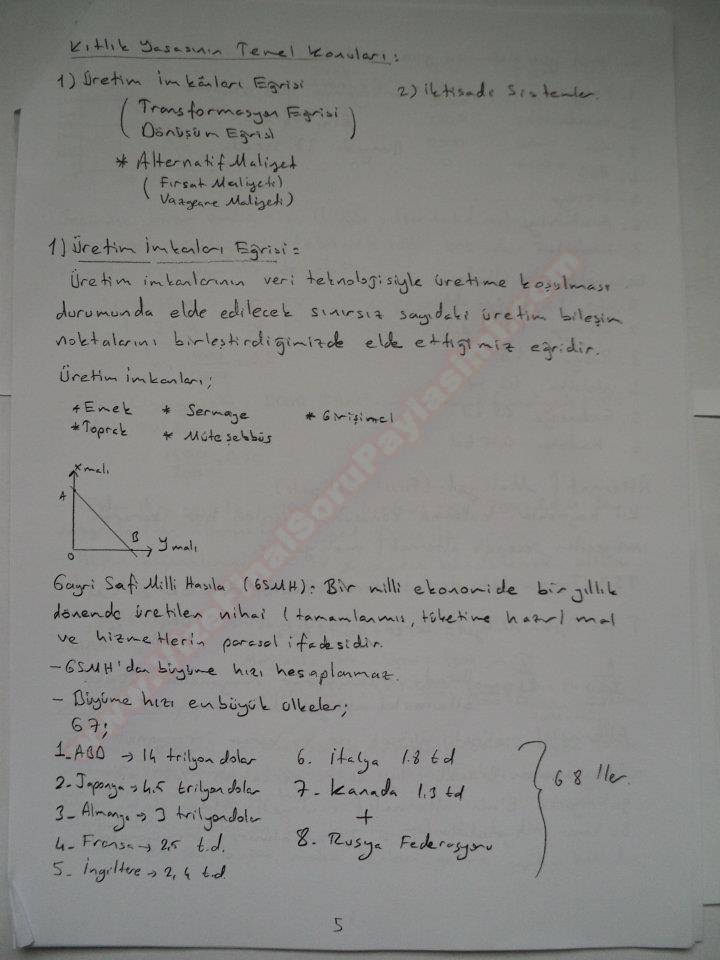 Kıtlık Yasasının Temel Konuları:
1) Üretim İmkânları Eğrisi
2) İktisadi Sistemler.
(Transformasyon Eğrisi
Dönüşüm Eğrisi)
* Alternatif Maliyet
(Fırsat Maliyeti)
Vazgeçme Maliyeti)
1) Üretim İmkanları Eğrisi =
Üretim imkanlarının veri teknolojisiyle üretime koşulması
durumunda elde edilecek sınırsız sayıdaki üretim bileşim
noktalarını birleştirdiğimizde elde ettiğimiz eğridir.
Üretim imkanları;
* Emek * Sermaye * Girişimci
* Toprak * Müteşebbüs
X malı
A
B
0
Y malı
Gayri Safi Milli Hasıla (GSMH): Bir milli ekonomide bir yıllık
dönemde üretilen nihai (tamamlanmış, tüketime hazır) mal
ve hizmetlerin parasal ifadesidir.
- GSMH'dan büyüme hızı hesaplanmaz.
- Büyüme hızı en büyük ülkeler;
G7;
1- ABD → 14 trilyon dolar
2- Japonya → 4.5 trilyon dolar
3- Almanya → 3 trilyon dolar
4- Fransa → 2,5 t.d.
5- İngiltere → 2,4 t.d.
6. İtalya 1.8 td
7- Kanada 1.3 td
+
8. Rusya Federasyonu
G8'ller.
5